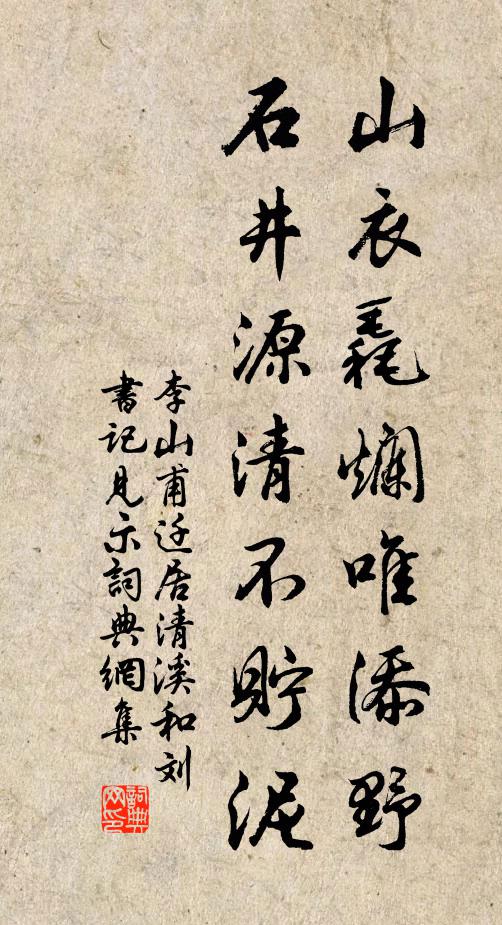 山衣毳爛唯添野
石井源清不貯泥
李山甫迁居清溪和刘
書記見示詞典網集
詞典网印